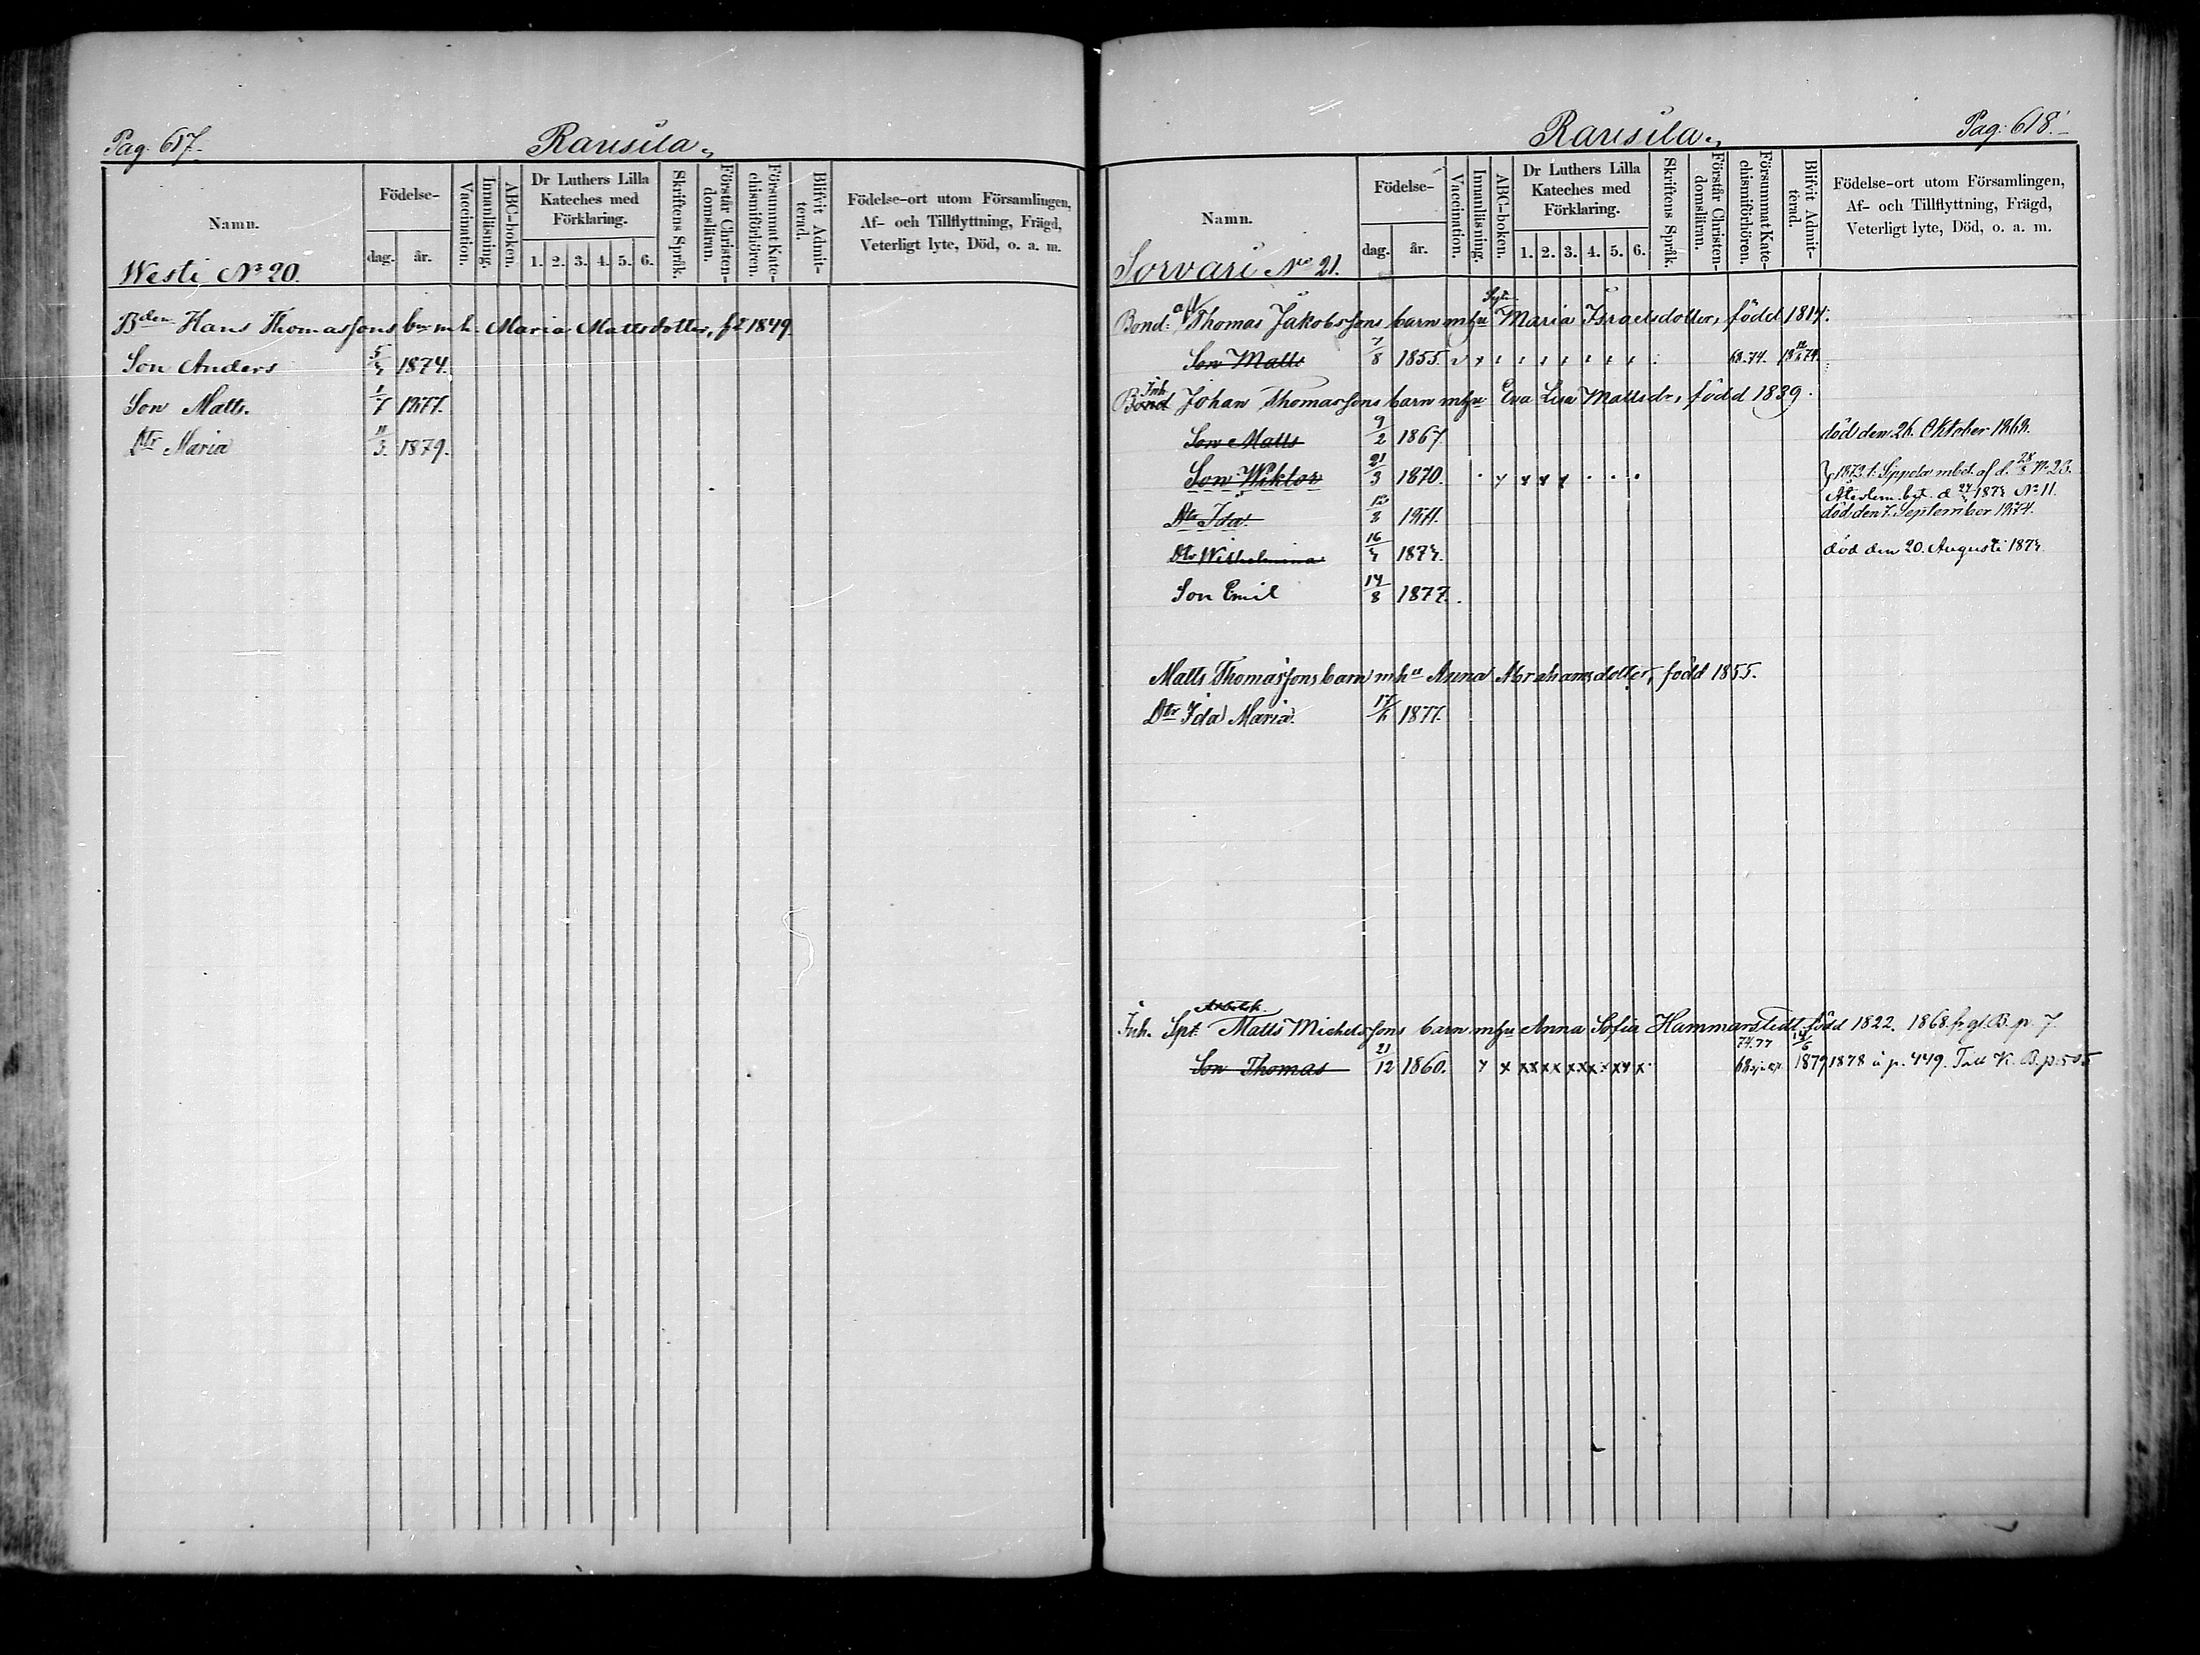 Pag. 617.
Rausila.
Namn.
Födelse-
dag.
år.
Vaccination.
Innanläsning.
ABC-boken.
Dr Luthers Lilla
Kateches med
Förklaring.
1. 2. 3. 4. 5. 6.
Skriftens Språk.
Förstår Christen-
domsläran.
Försummat Kate-
chismiförhören.
Blifvit Admit-
terad.
Födelse-ort utom Församlingen,
Af- och Tillflyttning, Frägd,
Veterligt lyte, Död, o. a. m.
Westi No 20.
Bden Hans Thomassons bn m. h. Maria Mattsdotter, f. 1849.
Son Anders 1874.
Son Matts. 1/7 1877.
Dtr Maria 11/3. 1879.
Rausila.
Pag. 618.
Namn.
Födelse-
dag.
år.
Vaccination.
Innanläsning.
ABC-boken.
Dr Luthers Lilla
Kateches med
Förklaring.
1. 2. 3. 4. 5. 6.
Skriftens Språk.
Förstår Christen-
domsläran.
Försummat Kate-
chismiförhören.
Blifvit Admit-
terad.
Födelse-ort utom Församlingen,
Af- och Tillflyttning, Frägd,
Veterligt lyte, Död, o. a. m.
Sorvari No 21.
Bond: Thomas Jakobssons barn m hu Maria Israelsdotter, född 1814.
Son Matts 7/8 1855. 68.74.
Inh.
Bond Johan Thomassons barn m hu Eva Lisa Mattsdr, född 1839.
Son Matts 9/2 1867 död den 26. Oktober 1868.
Son Wiktor 21/3 1870. 1873 t. Sippola m bet. af d. 28/3 No 23.
Återlem. bet. d. No 11.
Dtr Ida död den 7. September 1874.
Dtr Wilhelmina död den 20. Augusti
Son Emil 14/8 1877.
Matts Thomassons barn m hu Anna Abrahamsdotter, född 1855.
Dtr Ida Maria. 1877.
Inh. Spt. Matts Michelssons barn m hu Anna Sofia Hammarstedt född 1822. 1868 fr. gl. B. p. 7.
Son Thomas 21/12 1860. 1879 1878 å p. 449. K. B. p. 505